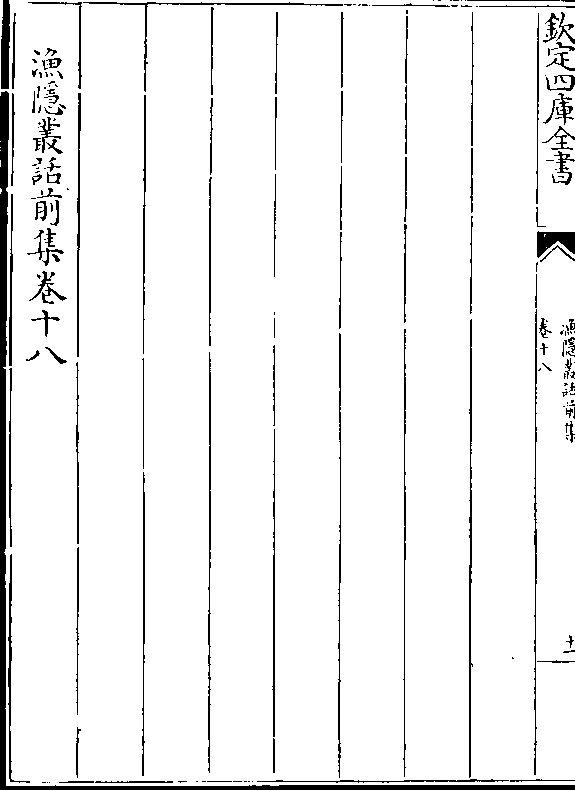 欽定四庫全書
漁隱叢話前集
卷十八
十一
漁隱叢話前集卷十八